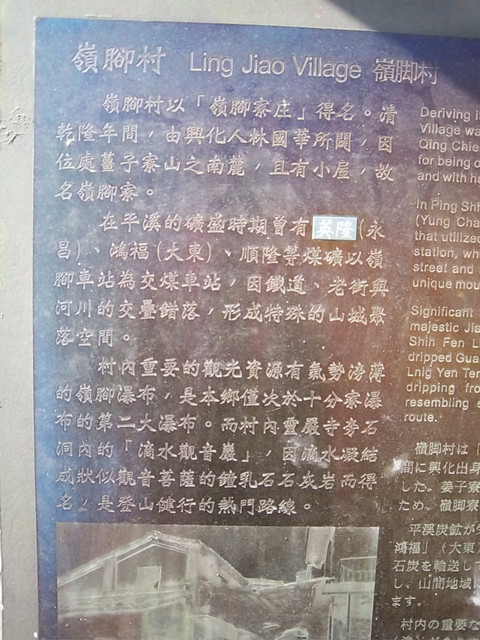 嶺腳村 Ling Jiao Village 嶺脚村
嶺腳村以「嶺腳寮庄」得名。清
乾隆年間，由興化人林國華所闢，因
位處薑子寮山之南麓，且有小屋，故
名嶺腳寮。
在平溪的礦盛時期曾有英隆(永
昌)、鴻福(大東)、順隆等煤礦以嶺
腳車站為交煤車站，因鐵道、老街與
河川的交疊錯落，形成特殊的山城聚
落空間。
村內重要的觀光資源有氣勢滂薄
的嶺腳瀑布，是本鄉僅次於十分寮瀑
布的第二大瀑布。而村內靈嚴寺旁石
洞內的「滴水觀音巖」，因滴水凝結
成狀似觀音菩薩的鐘乳石石灰岩而得
名，是登山健行的熱門路線。
Deriving
Village wa
Qing Chie
for being o
and with h
In Ping Sh
(Yung Cha
that utilized
station, wh
street and
unique mou
Significant
majestic Jia
Shih Fen L
dripped Gua
Lnig Yen Ter
dripping fro
resembling s
route.
嶺脚村は「
間に興化出身
した。姜子寮
ため、嶺脚寮
平溪炭鉱が
鴻福」(大東)
石炭を輸送して
し、山間地域
ます。
村内の重要な